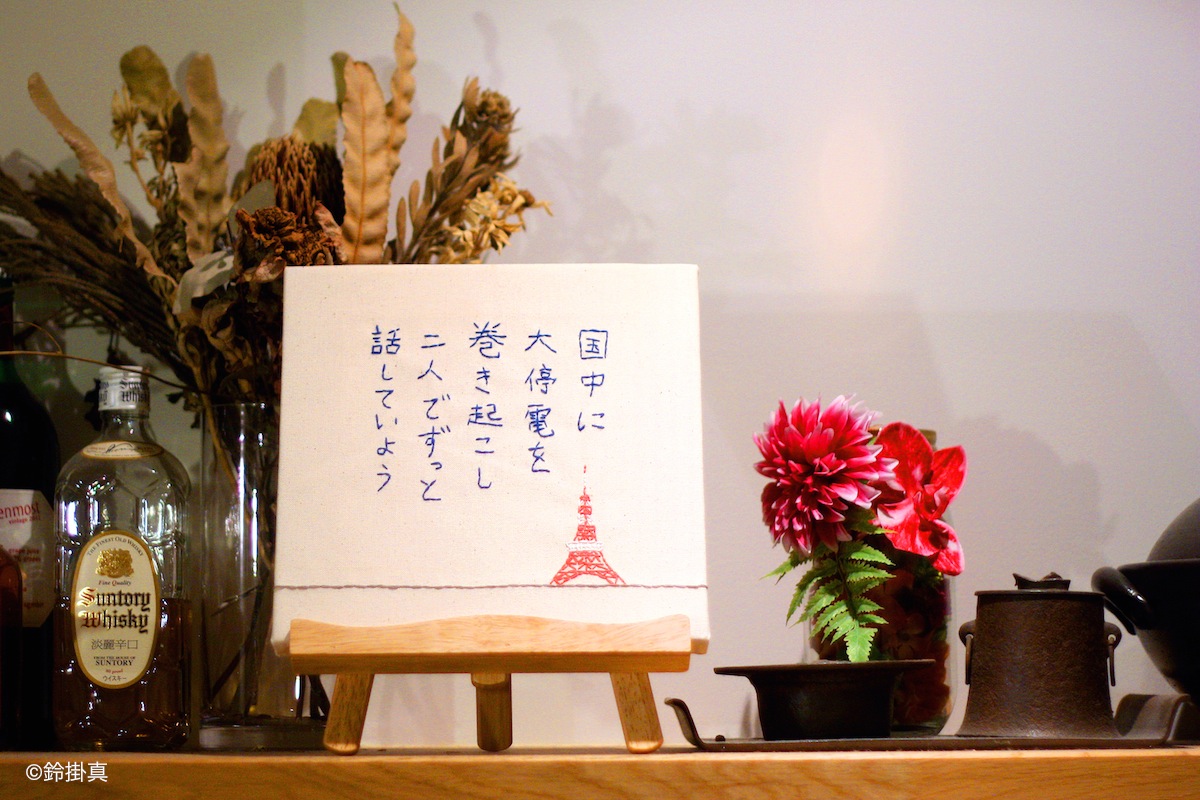 国中に
大停電を
巻き起こし
二人でずっと
話していよう
enmost
THE FINEST OLD WHISKY
Fine Quality
Suntory
Whisky
淡麗辛口
FROM THE HOUSE OF
SUNTORY
ウイスキー
©鈴掛真